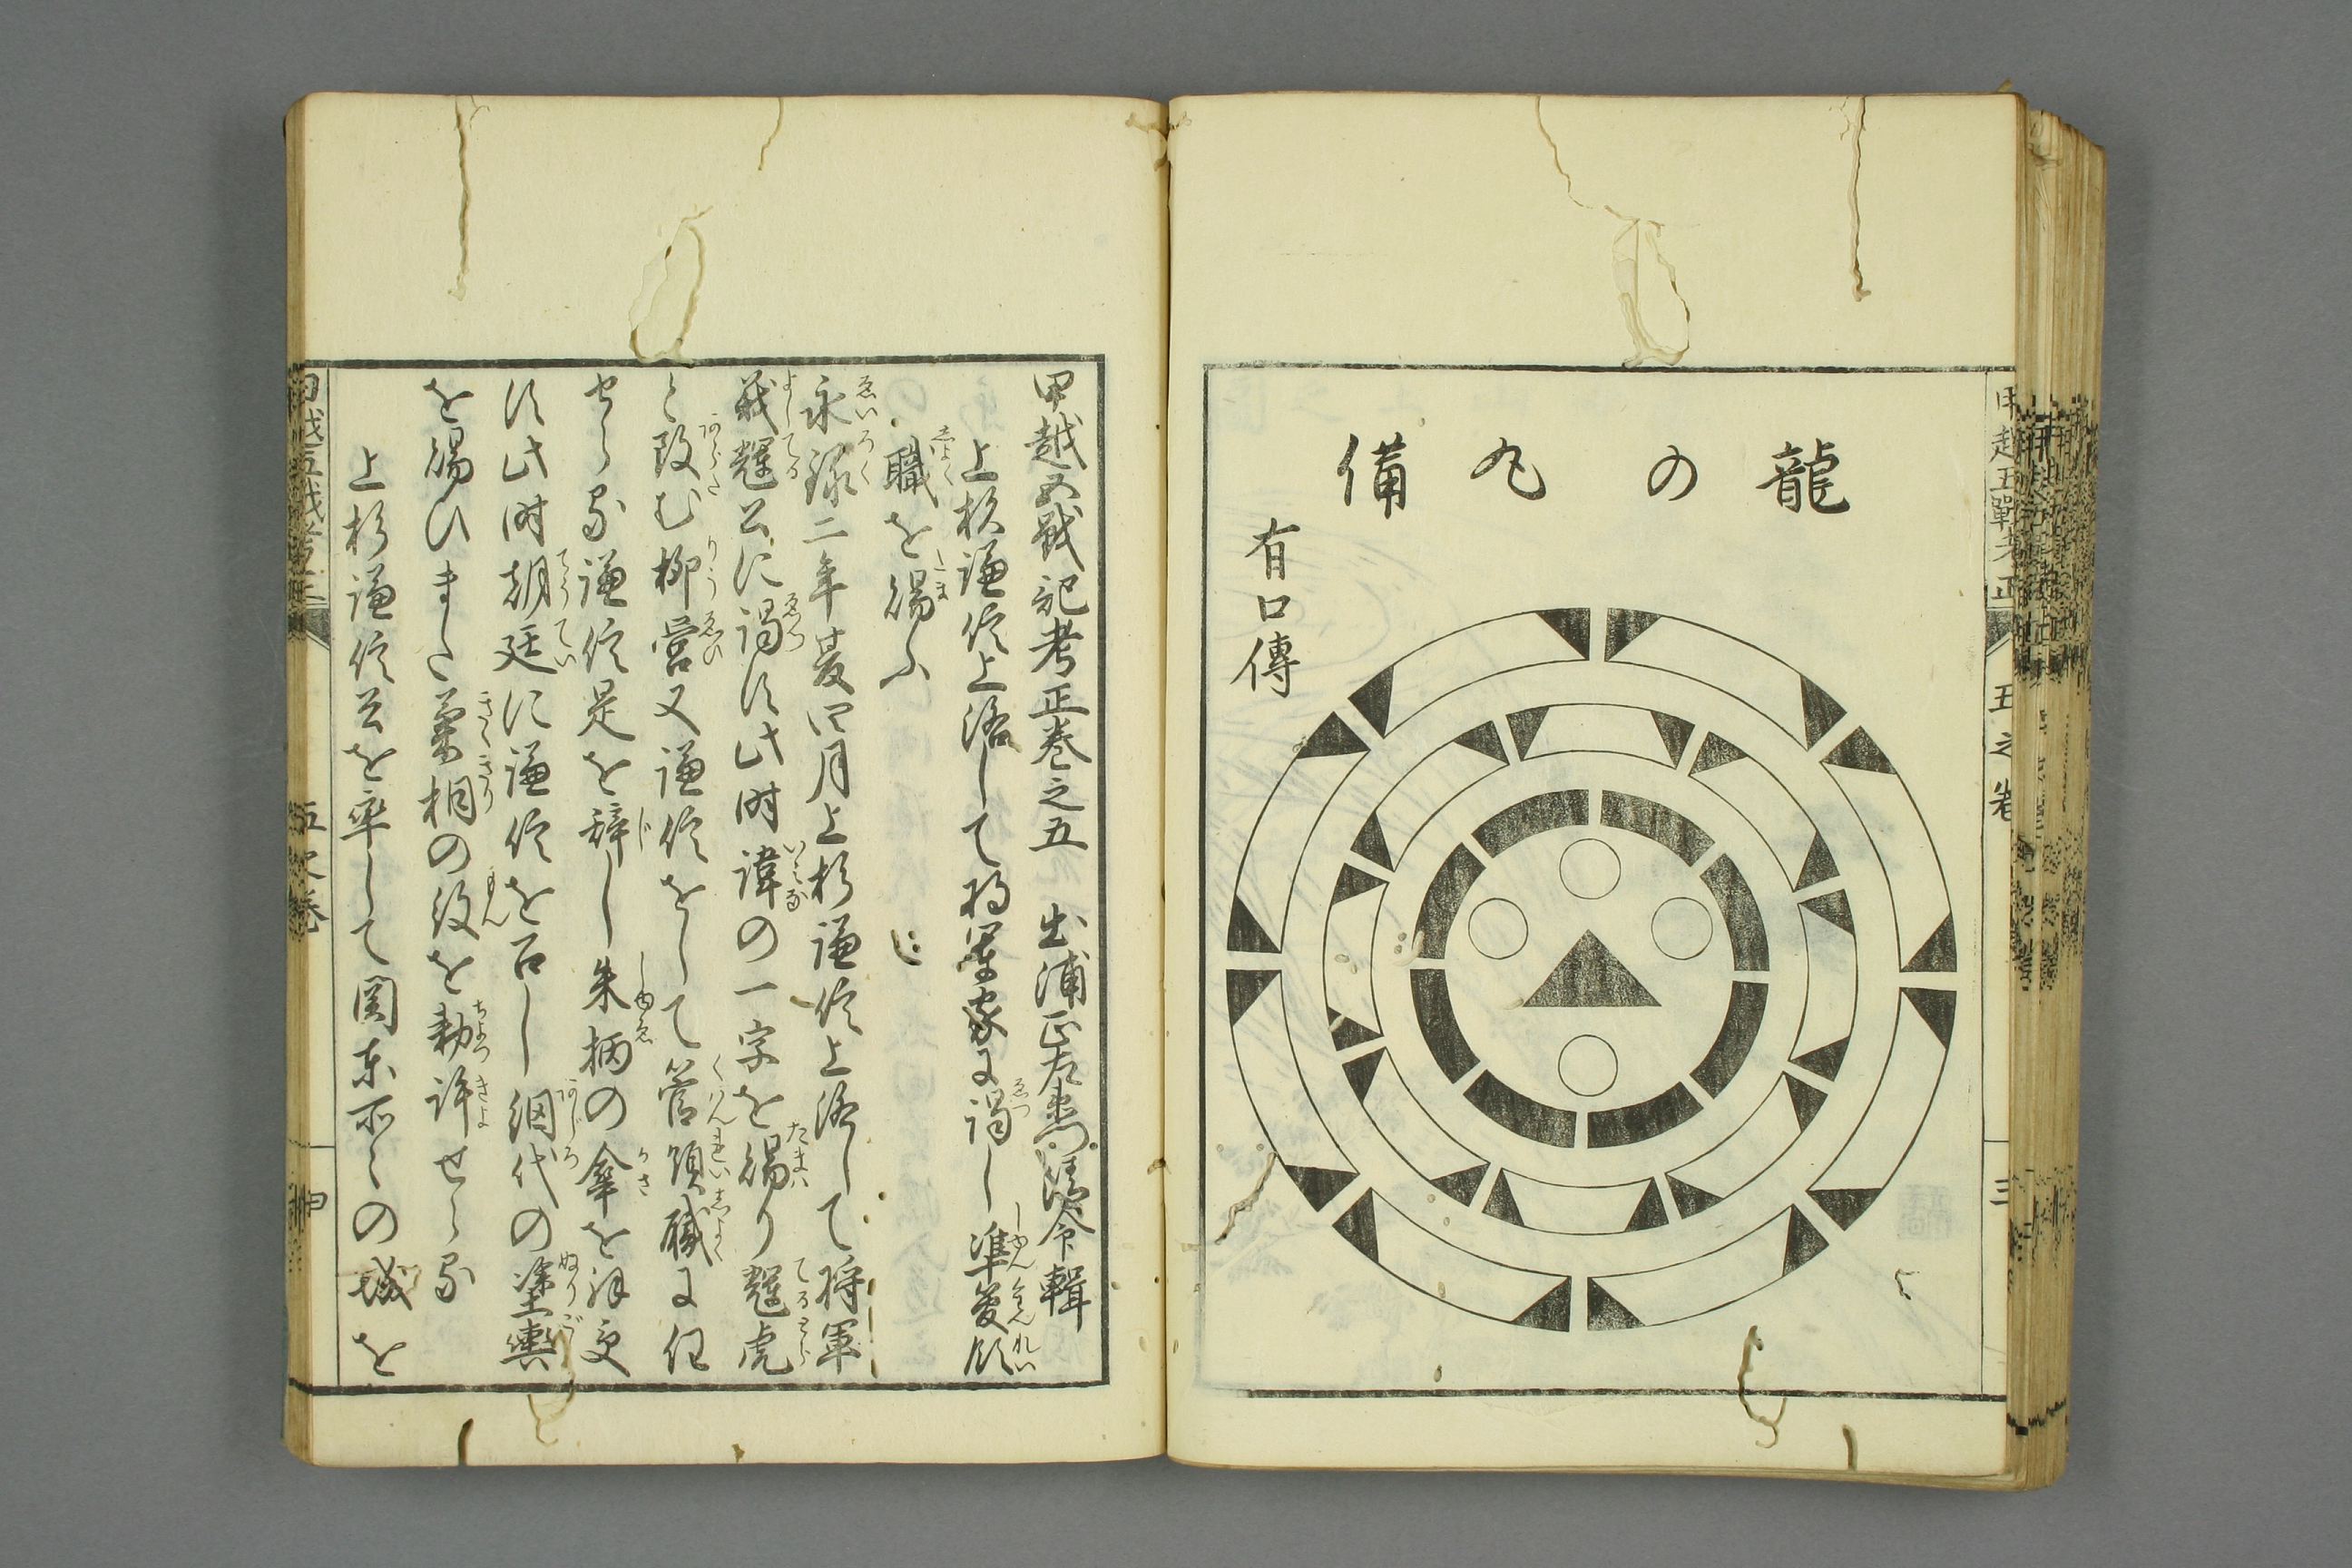 龍の丸備
有口傳
甲越五戰考正
五之卷
三
甲越五戰記考正卷之五 出浦正左衛門清命輯
上杦謙信上洛して將軍家に謁し準管領
職を賜ふ
永禄二年夏四月上杉謙信上洛して将軍
義輝公に謁す此時諱の一字を賜り輝虎
と改む柳營又謙信をして管領職に任
せらる謙信是を辞し朱柄の傘を
す此時朝廷に謙信を召し網代の塗輿
を賜ひまた菊桐の紋を勅許せらる
上杉謙信公を率して関東所々の城を
五之卷